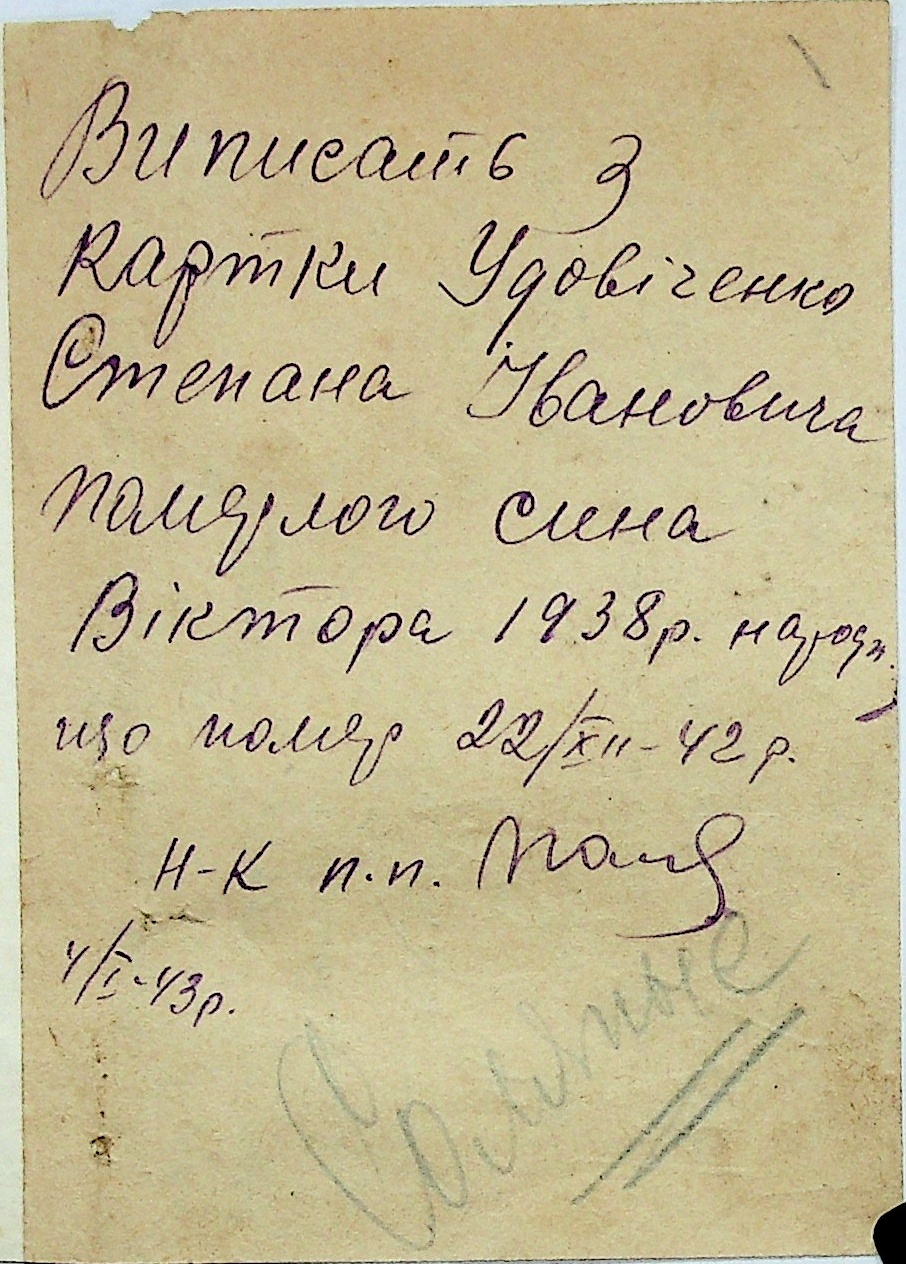 Виписать з
картки Удовіченко
Степана Івановича
помярлого сина
Віктора 1938р. народж.
що помяр 22/XII-42р.
Н-К п.п.
4/I-43р.